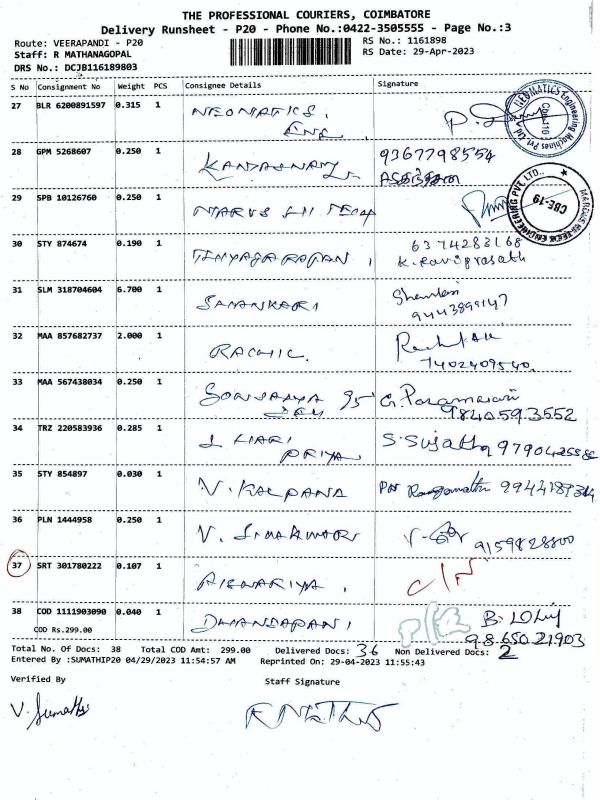 THE PROFESSIONAL COURIERS, COIMBATORE
Delivery Runsheet - P20 - Phone No.:0422-3505555 - Page No.:3
Route: VEERAPANDI - P20
RS No.: 1161898
Staff: R MATHANAGOPAL
RS Date: 29-Apr-2023
DRS No.: DCJB116189803
S No Consignment No Weight PCS Consignee Details Signature
27 BLR 6200891597 0.315 1 NEOMATICS.
ENG
28 GPM 5268607 0.250 1 KANDASWAMY 9367798554
29 SPB 10126760 0.250 1
30 STY 874674 0.190 1 THIYAGARAJAN 6374283168
K. Raviprasath
31 SLM 318704604 6.700 1 SANANKARI
9443899147
32 MAA 857682737 2.000 1 RACHIC.
7402409540
33 MAA 567438034 0.250 1 95 G. Parameswari
9840593552
34 TRZ 220583936 0.285 1 HARI PRIYA S. Sujatha
35 STY 854897 0.030 1 V. KALPANA Ranganathan
36 PLN 1444958 0.250 1 V. 9159828800
37 SRT 301780222 0.107 1 AISWARIYA. C/N
38 COD 1111903090 0.040 1 DHANDAPANI B.
COD Rs.299.00 98.650.21903
Total No. Of Docs: 38 Total COD Amt: 299.00 Delivered Docs: 36 Non Delivered Docs: 2
Entered By :SUMATHIP20 04/29/2023 11:54:57 AM Reprinted On: 29-04-2023 11:55:43
Verified By
Staff Signature
V. Sumathi